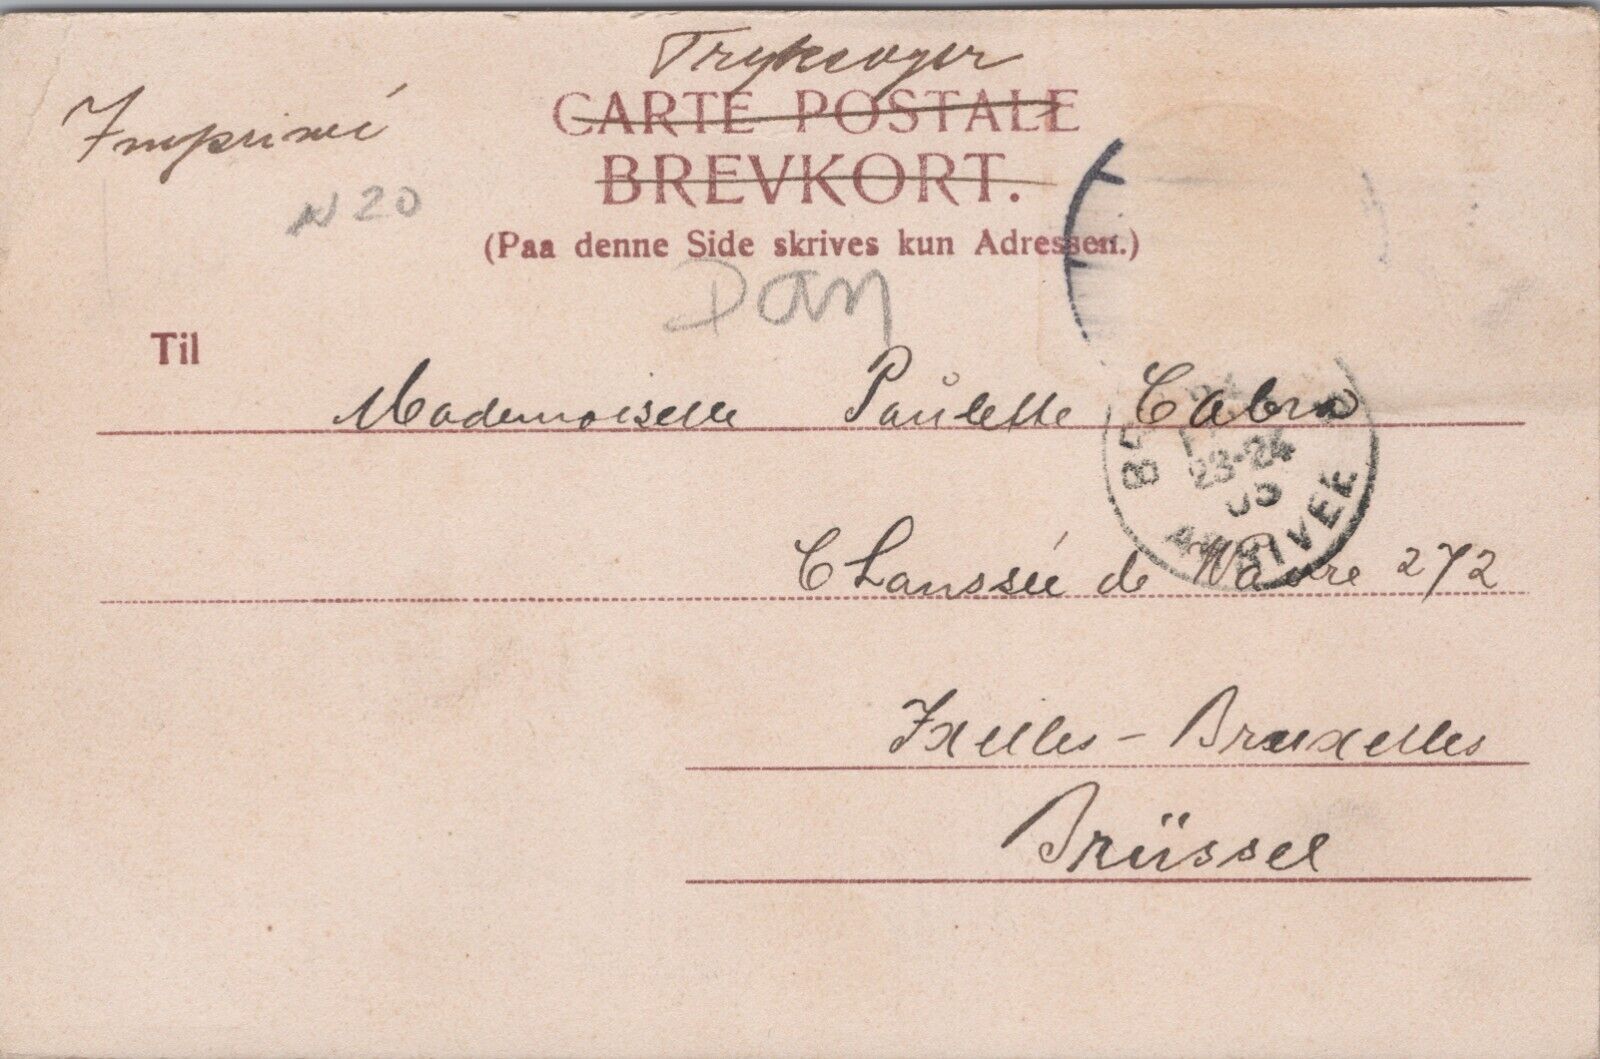 Tryksager
Imprimé
CARTE POSTALE
BREVKORT.
N 20
(Paa denne Side skrives kun Adressen.)
Dan
Til
Mademoiselle Paulette Cabra
23-24
05
ARRIVEE
Chaussée de Wavre 272
Ixelles - Bruxelles
Brüssel